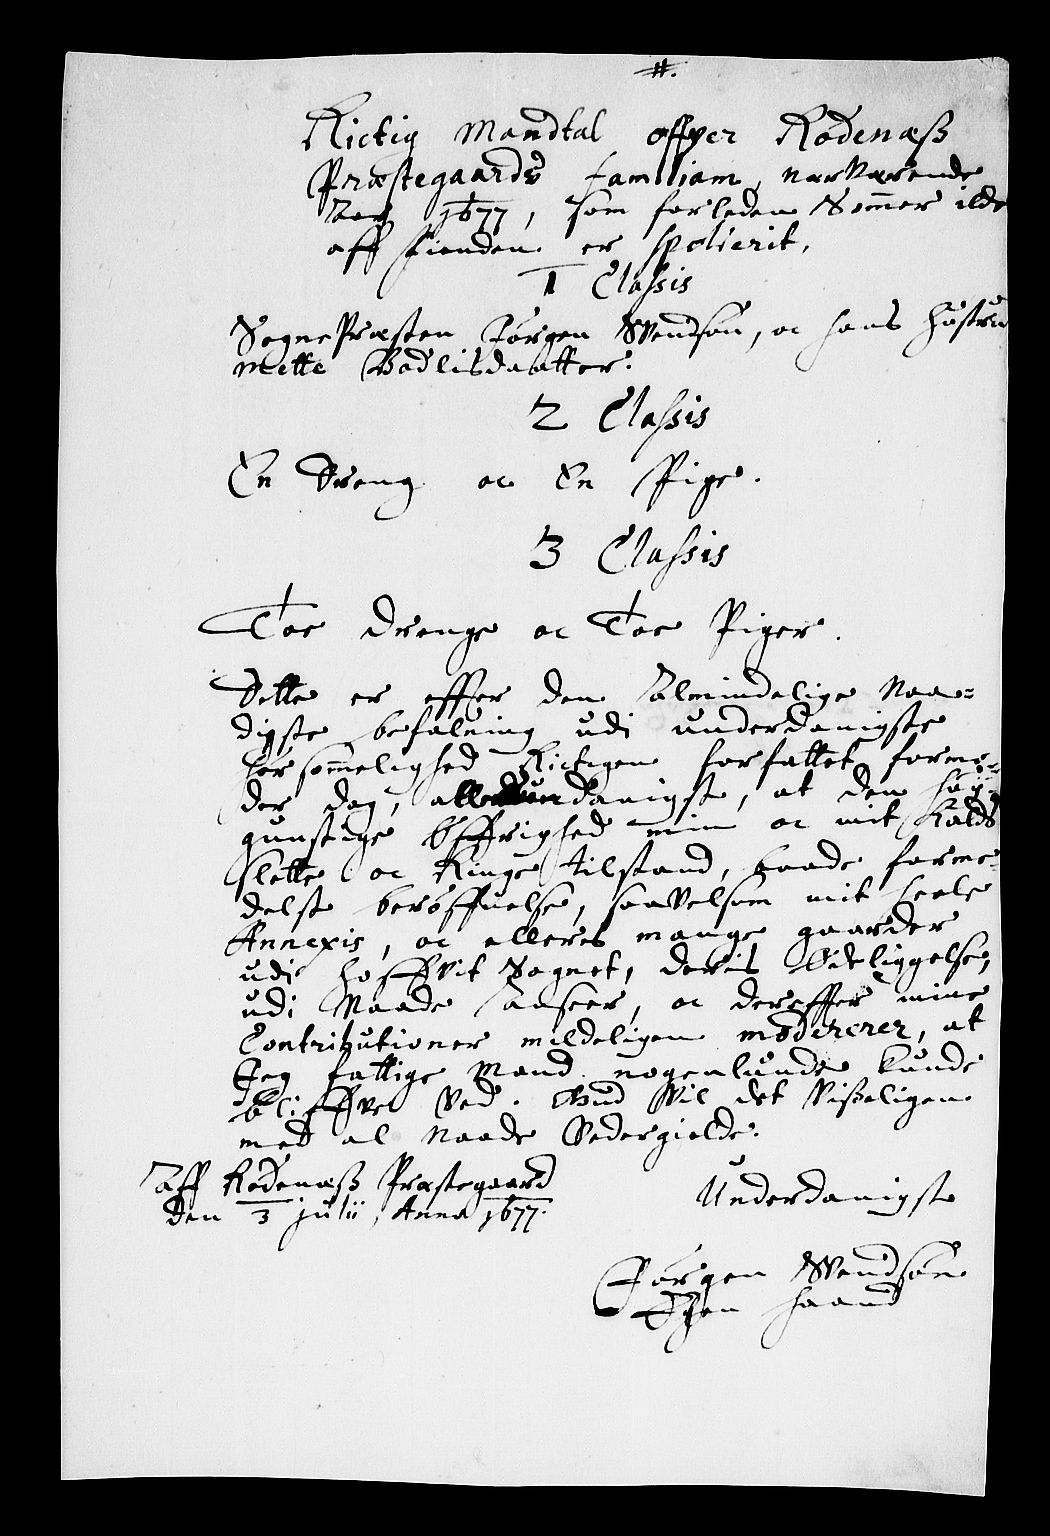 #.
Rictig Mandtal offver Rødenæß
Præstegaards familiam, nærværende
Aar 1677, som forleden Sommer ilde
aff fienden er spolierit.
1 Classis
SognePræsten Jörgen Svendsön, oc hans höstru
Mette Bodlisdaatter.
2 Classis
En Dreng oc En Pige.
3 Classis
Toe Drenge oc Toe Piger.
Dette er effter den Allmindelige Naa-
digste befalning udi underdanigste
hörsommelighed Rictigen forfattet forme-
der dog, allerunderdanigst, at den höy-
gunstige Öffrighed min oc mit Kalds
slette oc Ringe tilstand, baade forme-
delst beröffuelse, saavelsom mit heele
Annexis, oc ellers mange gaarder
udi hoffvit Sognet, deris Ödeliggelse,
udi Naade Anseer, oc dereffter mine
Contributioner mildeligen modererer, at
Jeg fattige Mand nogenlunde kunde
bliffve ved. Gud vil det visseligen
med al Naade Vedergielde.
Aff Rødenæß Præstegaard
den 3 Julii, Anno 1677.
Underdanigst
Jörgen Svendsön
Egen haand